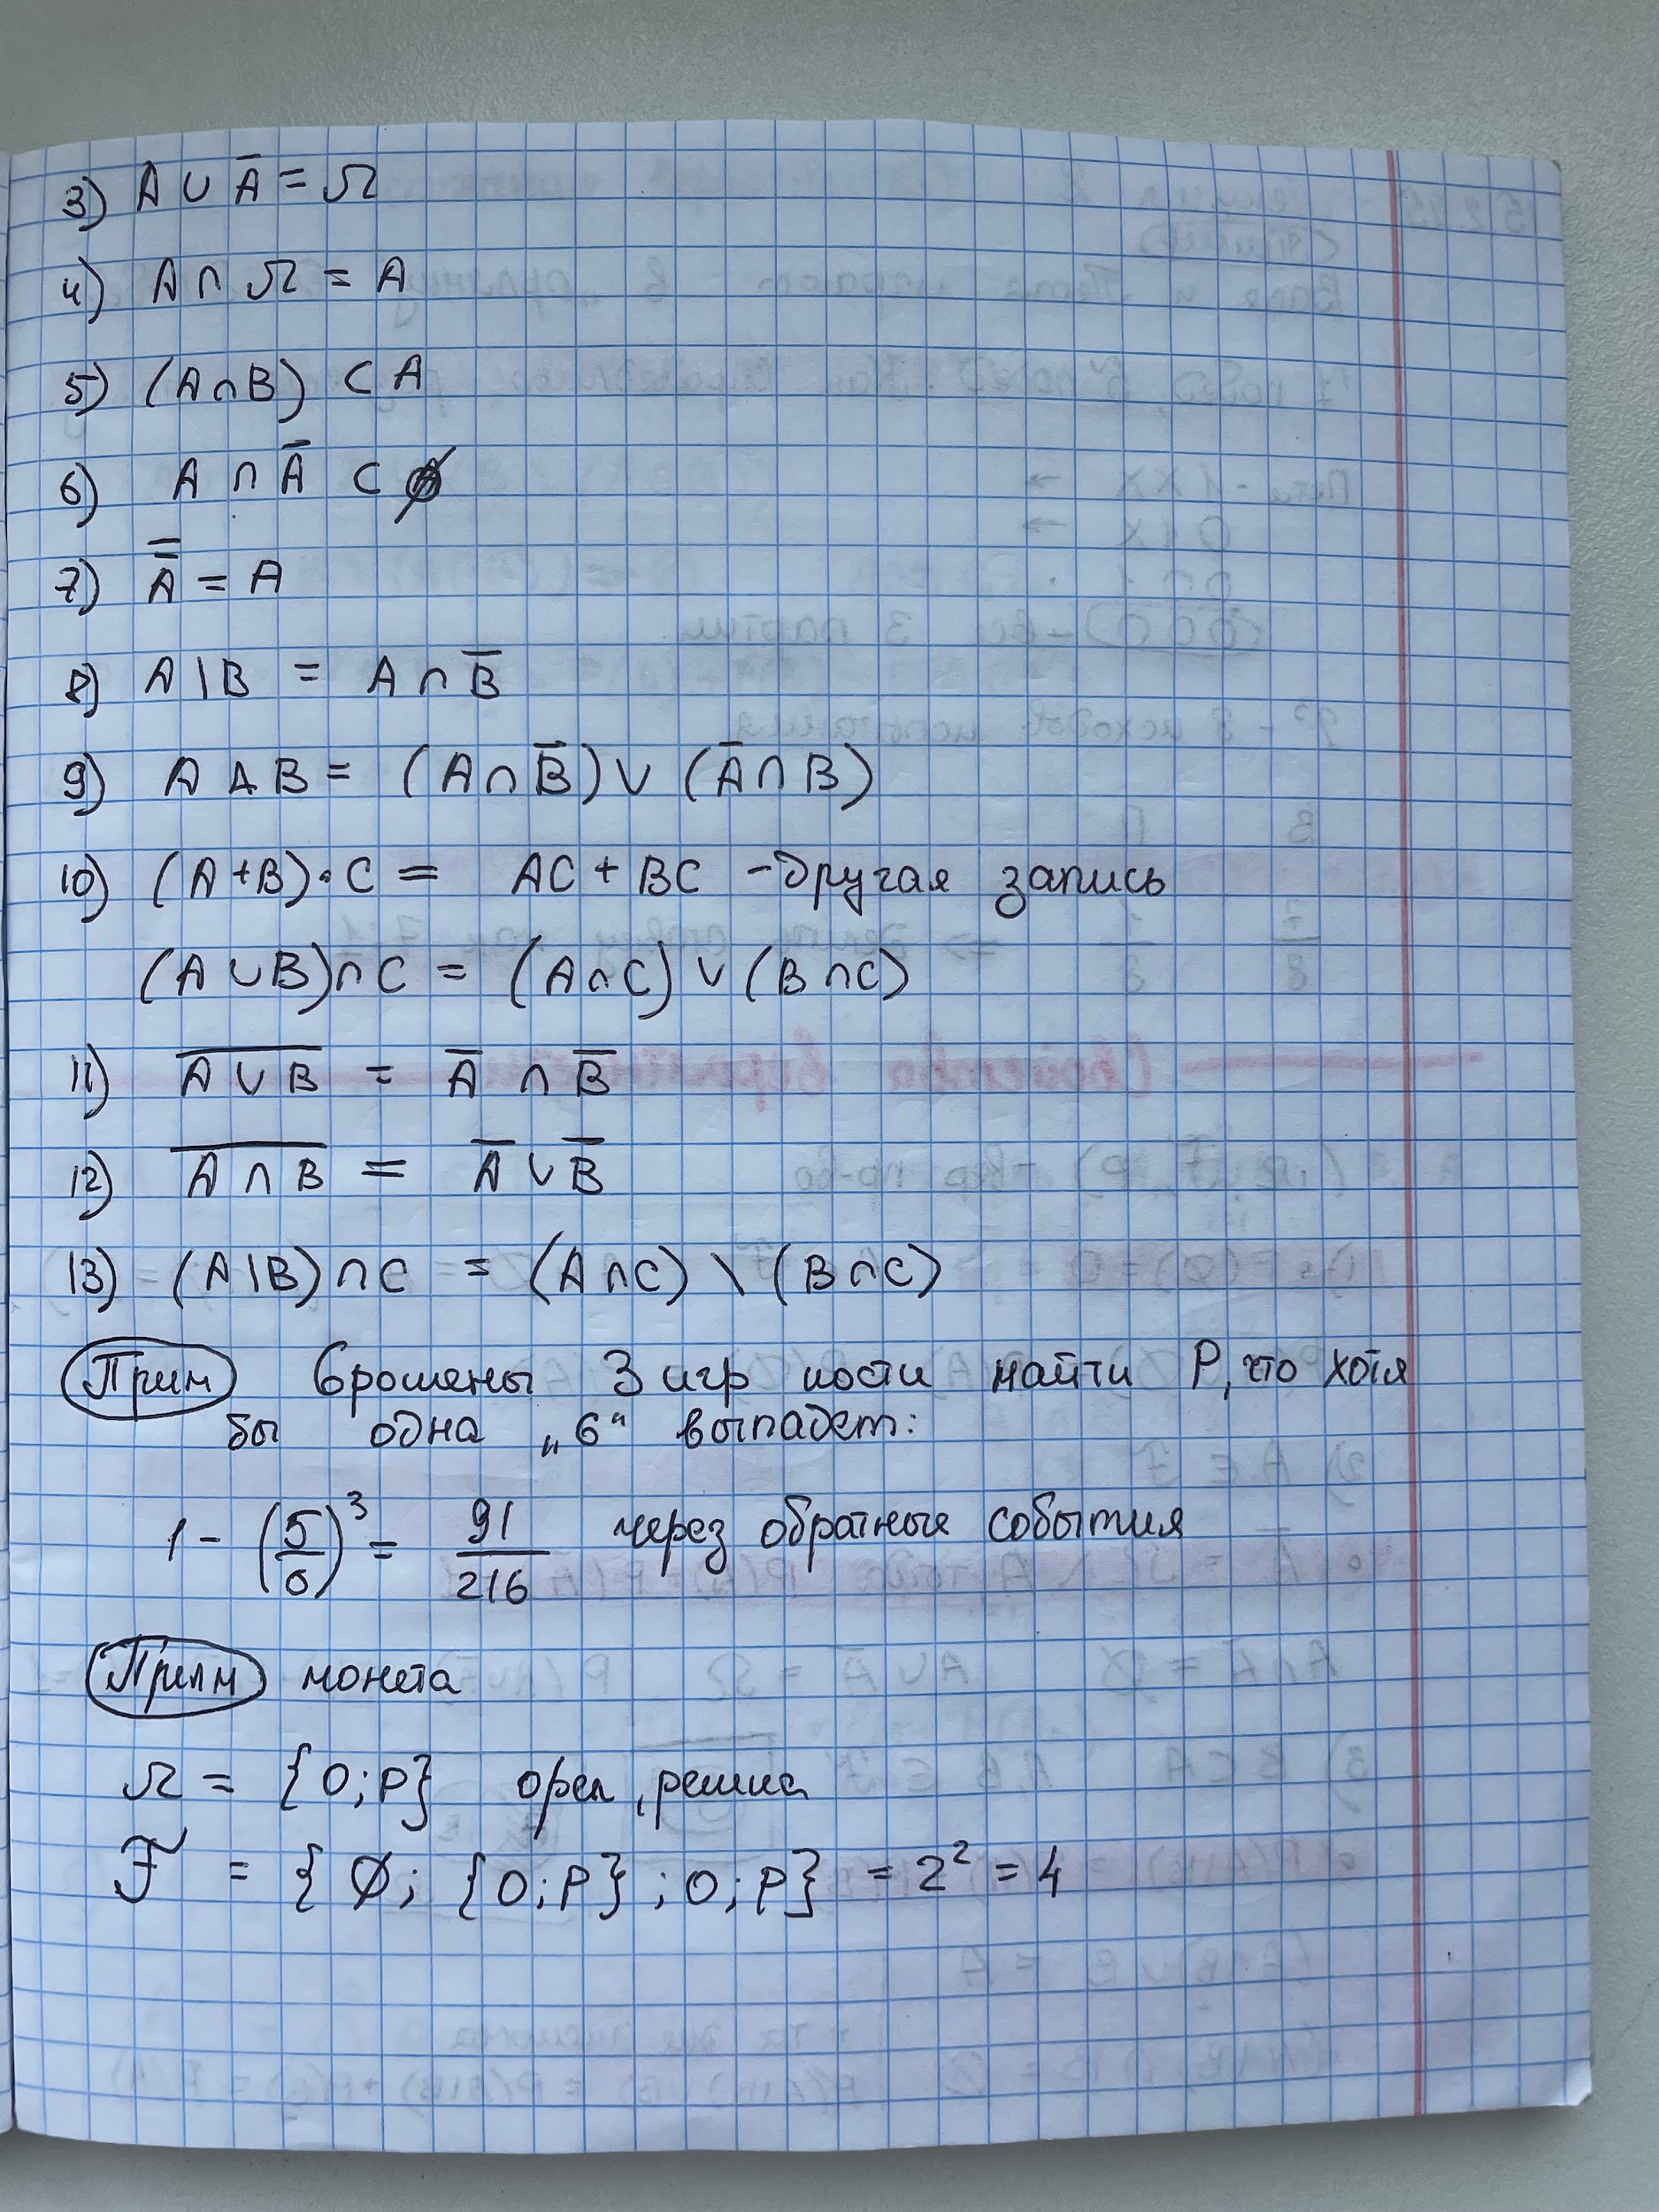 3) A ∪ A̅ = Ω
4) A ∩ Ω = A
5) (A∩B) ⊂ A
6) A ∩ A̅ ⊂ ∅
7) A̿ = A
8) A \ B = A ∩ B̅
9) A Δ B = (A ∩ B̅) ∪ (A̅ ∩ B)
10) (A+B)·C = AC + BC - другая запись
(A ∪ B) ∩ C = (A∩C) ∪ (B∩C)
11) \overline{A ∪ B} = A̅ ∩ B̅
12) \overline{A ∩ B} = A̅ ∪ B̅
13) (A\B) ∩ C = (A∩C) \ (B∩C)
Прим брошены 3 игр кости найти P, что хотя
бы одна „6“ выпадет:
1 - (5/6)³ = 91/216 через обратные события
Прим монета
Ω = {О;Р} орел, решка
ℱ = {∅; {О;Р}; О; Р} = 2² = 4